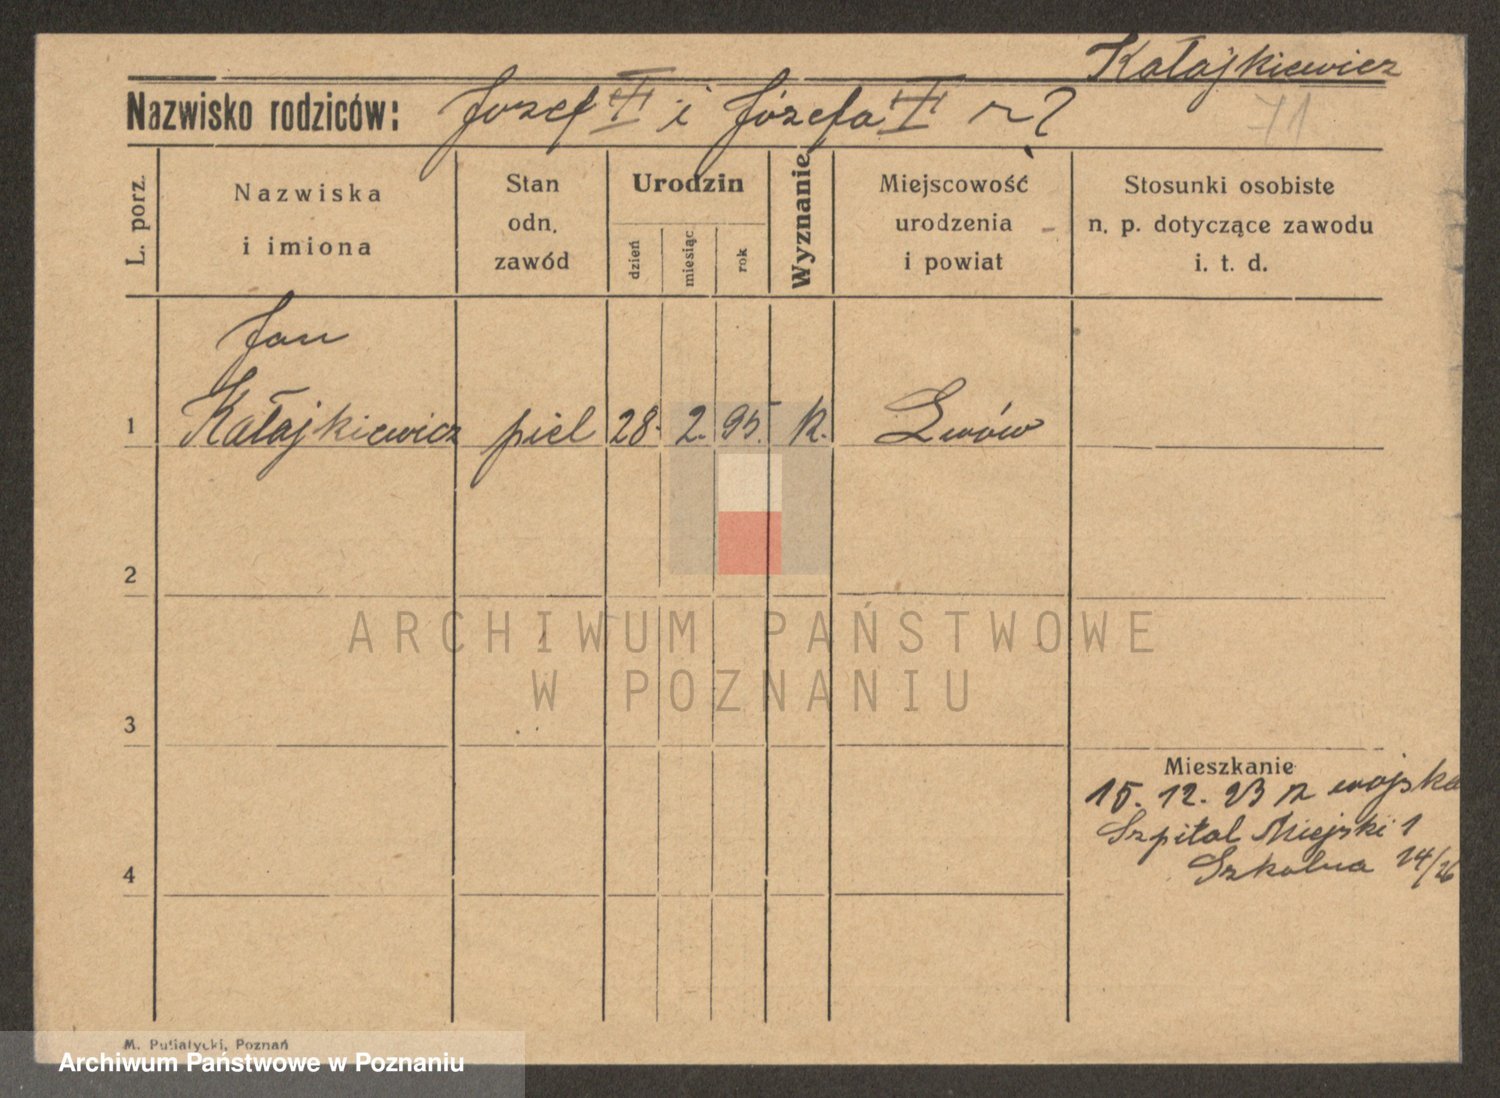 Kałajkiewicz
Nazwisko rodziców: Jozef i Józefa n?
71
L. porz.
Nazwiska
i imiona
Stan
odn.
zawód
Urodzin
dzień
miesiąc
rok
Wyznanie
Miejscowość
urodzenia
i powiat
Stosunki osobiste
n. p. dotyczące zawodu
i. t. d.
Jan
1 Kałajkiewicz piel 28. 2. 95. k. Lwów
2
ARCHIWUM PAŃSTWOWE
W POZNANIU
3
Mieszkanie
15. 12. 23 z wojska
Szpital Miejski 1
Szkolna 14/26
4
M. Putiatycki, Poznań
Archiwum Państwowe w Poznaniu